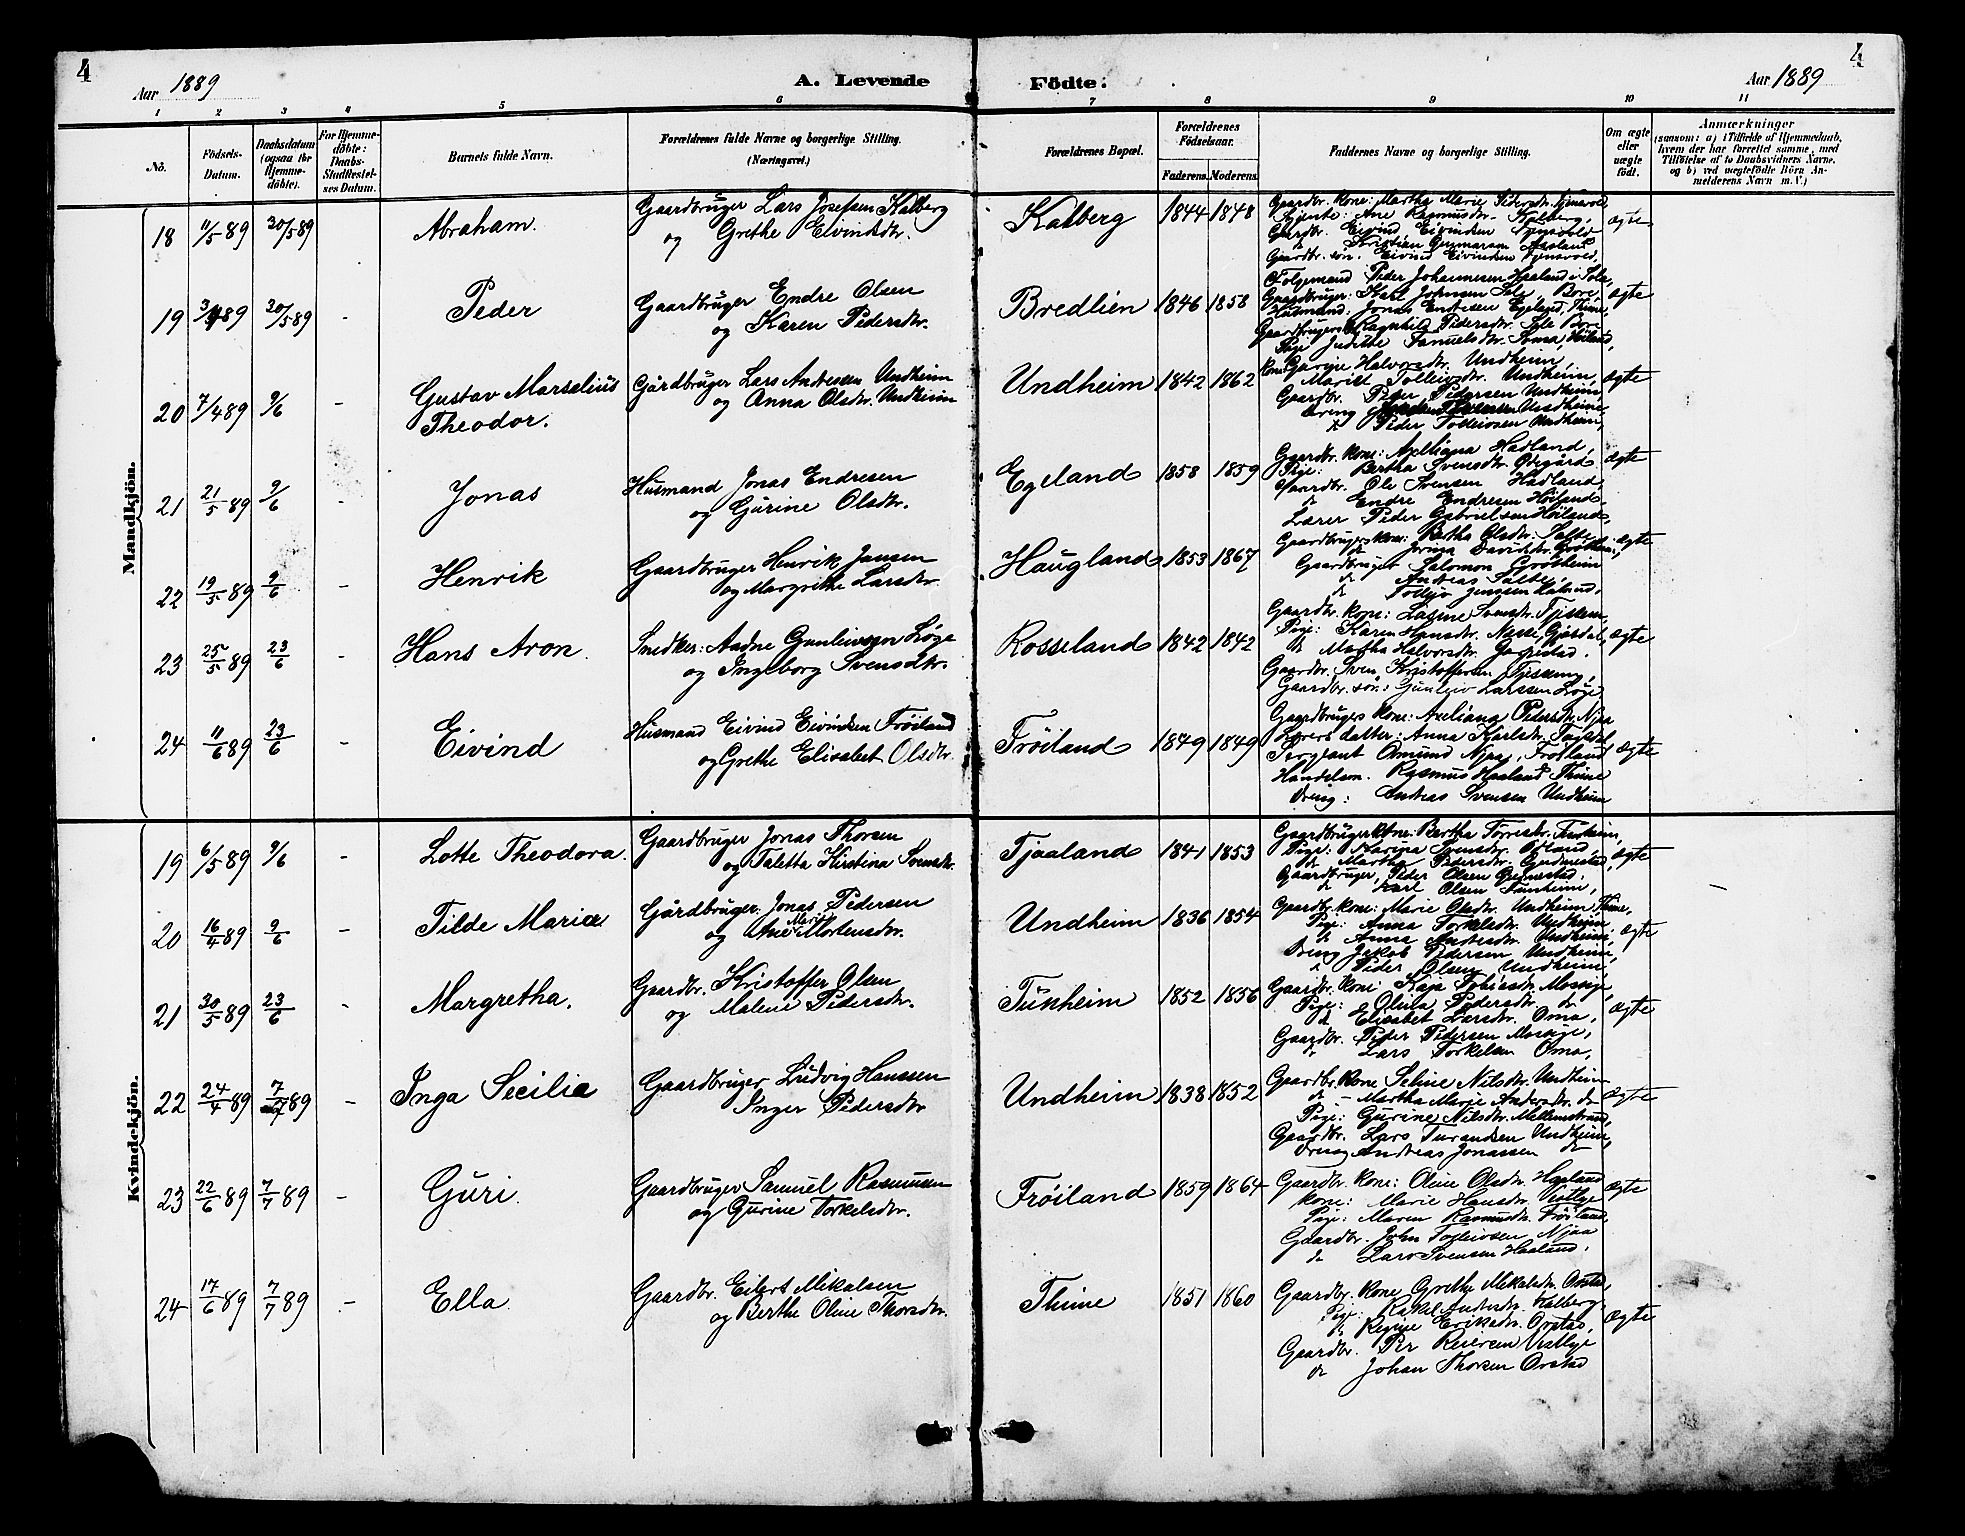 4
Aar 1889
A. Levende
Födte:
Aar 1889
4
1 2 3 4 5 6 7 8 9 10 11
No.
Födsels-
Datum.
Daabsdatum
(ogsaa for
Hjemme-
döbte).
For Hjemme-
döbte:
Daabs-
Stadfæstel-
ses Datum.
Barnets fulde Navn.
Forældrenes fulde Navne og borgerlige Stilling.
(Næringsvei.)
Forældrenes Bopæl.
Forældrenes
Födselsaar.
Faderens. Moderens.
Faddernes Navne og borgerlige Stilling.
Om ægte
eller
uægte
födt.
Anmærkninger
(saasom: a) i Tilfælde af Hjemmedaab,
hvem der har forrettet samme, med
Tilföielse af to Daabsvidners Navne,
og b) ved uægtefödte Börn An-
melderens Navn m. V.)
Mandkjön.
18 11/5 89 30/5 89 Abraham.
Gaardbruger Lars Josefsen Kalberg
og Grethe Eivindsdtr.
Kalberg 1844 1848
Gaardbr. kone: Martha Marie
Ane Rasmusdtr. Kalberg,
Gaardbr. Eivind Eivindsen
Kristian Gunnarsen Aasland
Gaardbr. søn. Eivind Eivindsen
ægte
19 89 30/5 89 - Peder
Gaardbruger Endre Olsen
og Karen Pedersdtr.
Bredlien 1846 1858
Peder Johannesen Haaland i
Gaardbruger: Karl Johnsen Sele, Bore,
Husmand: Jonas Endresen Egeland, Thime,
Ragnhild Pedersdtr. Sele Bore
Pige Judithe Samuelsdtr.
ægte
20 7/4 89 9/6 - Gustav Marselius
Theodor.
Gårdbruger Lars Andresen Undheim
og Anna Olsdtr. Undheim
Undheim 1842 1862
kone Gurine Halvorsdtr. Undheim,
Undheim,
Gaardbr. Peder Pedersen Undheim,
Dreng Undheim,
Peder Tolleivsen Undheim,
ægte
21 21/5 89 9/6 - Jonas
Husmand Jonas Endresen
og Gurine Olsdtr.
Egeland 1858 1859
Gaardbr. kone: Axeliana Hadland,
Pige: Bertha Svensdtr. Ødegård
Gaardbr. Ole Svensen Hadland,
do Endre Endresen Høiland,
Lærer Peder Gabrielsen Høiland,
ægte
22 19/5 89 9/6 Henrik
Gaardbruger Henrik Jansen
og Margrethe Larsdtr.
Haugland 1853 1867
Gaardbrugerskone: Bertha Olsdtr. Salte,
Davidsdtr. Grødheim,
Gaardbruger Salomon Grødheim
do Andreas Salte,
do
ægte
23 25/5 89 23/6 - Hans Aron.
Snedker: Aadne Gunleivsen Løge
og Ingeborg Svensdtr.
Rosseland 1842 1842
Gaardbr. kone: Lasine Svensdtr.
Pige: Karen Hansdtr.
Martha Halvorsdtr.
Gaardbr. Sven Kristoffersen
Gaardbr. søn: Gunleiv Larssen Løge
ægte
24 11/6 89 23/6 - Eivind
Husmand Eivind Eivindsen Frøiland
og Grethe Elisabet Olsdtr.
Frøiland 1849 1849
Gaardbrugers kone: Axeliana Pedersdtr. Njaa
Lærers datter: Anna Karlsdtr.
Sergeant Osmund Njaa, Frøiland
Handelsm. Rasmus Haaland Thime
Dreng: Andreas Svensen Undheim
ægte
Kvindekjön.
19 6/5 89 9/6 - Lotte Theodora.
Gaardbruger Jonas Thorsen
og Taletta Kirstina Svensdtr.
Tjaaland 1841 1853
Gaardbrugerkone: Bertha Torresdtr. Tunheim,
Pige: Karina Svensdtr.
do Martha Pedersdtr.
Gaardbruger, Peder Olsen
do Karl Olsen Tunheim,
ægte
20 16/4 89 9/6 - Tilde Maria
Gårdbruger. Jonas Pedersen
og Ane Marie Mortensdtr.
Undheim 1836 1854
Gaardbr. kone: Marie Olsdtr. Undheim, Thime,
Pige: Anna Torkelsdtr. Undheim,
do Anna Andresdtr. Undheim,
Dreng Jakob Pedersen Undheim,
do Peder Olsen Undheim,
ægte
21 30/5 89 23/6 - Margretha.
Gaardbr. Kristoffer Olsen
og Malene Pedersdtr.
Tunheim 1852 1856
Gaardbr. kone: Kaja Tobiasdtr. Mossige,
Pige: Olina Pedersdtr. do
do Elisabet Larsdtr. Oma,
Gaardbr. Peder Pedersen Mossige,
do Lars Torkelsen Oma,
ægte
22 24/4 89 7/7 89 - Inga Secilie
Gaardbruger Ludvig Hanssen
Inger Pedersdtr.
Undheim 1838 1852
Gaardbr. kone Seline Nilsdtr. Undheim
do - Martha Marie Andersdtr. do
Pige: Gurine Nilsdtr. Mellemstrand,
Gaardbr. Lars Undheim,
Dreng Andreas Jonassen do
ægte
23 22/6 89 7/7 89 - Guri.
Gaardbruger Samuel Rasmusen
og Gurine Torkelsdtr.
Frøiland 1859 1864
Gaardbr. kone: Oline Olsdtr. Haaland
kone: Marie Hansdtr. Vestlye
Pige: Maren Rasmusdtr. Frøiland,
Gaardbr. John Tolleivsen Njaa
do Lars Svensen Haaland.
ægte
24 17/6 89 7/7 89 - Ella.
Gaardbr. Eilert Mikalsen
og Berthe Oline Thorsdtr.
Thime 1851 1860
Gaardbr. kone Grethe Mikalsdtr. Orstad,
Pige: Rakel Andersdtr. Kalberg,
do Regine Eriksdtr. Orstad,
Gaardbr. Per Reiersen Vestlye
do Johan Thorsen Orstad
ægte